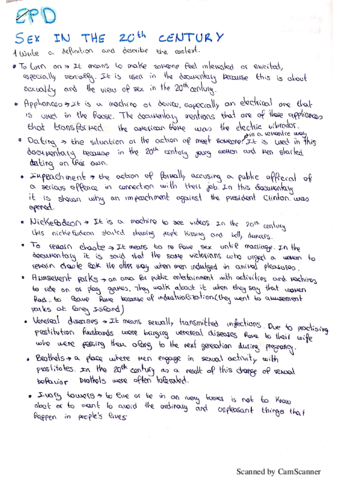 EPD
SEX IN THE 20th CENTURY
1 Write a definition and describe the context.
• To turn on → It means to make someone feel interested or excited,
especially sexually. It is used in the documentary because this is about
sexuality and the view of sex in the 20th century.
• Appliances → It is a machine or device, especially an electrical one that
is used in the house. The documentary mentions that one of these appliances
that transformed the american home was the electric vibrator.
in a romantic way
• Dating → the situation or the action of meet someone. It is used in this
documentary because in the 20th century young women and men started
dating on their own.
• Impeachment → the action of formally accusing a public official of
a serious offence in connection with their job. In this documentary
it is shown why an impeachment against the president Clinton was
opened.
• Nickelodeon → It is a machine to see videos. In the 20th century
this nickelodeon started showing people kissing and belly dancers.
• To remain chaste → It means to no have sex until marriage. In the
documentary it is said that the some victorians who urged a women to
remain chaste look the other way when men indulged in carnal pleasures.
• Amusement parks → an area for public entertainment with activities and machines
to ride on or play games. They walk about it when they say that women
had to leave home because of industrialisation (they went to amusement
parks at Coney Island)
• Venereal diseases → It means sexually transmitted infections. Due to practising
prostitution husbands were bringing venereal diseases home to their wife
who were passing them along to the next generation during pregnancy.
• Brothels → a place where men engage in sexual activity with
prostitutes. In the 20th century as a result of this change of sexual
behavior brothels were often tolerated.
• Ivory towers → to live or be in an ivory tower is not to know
about or to want to avoid the ordinary and unpleasant things that
happen in people's lives
Scanned by CamScanner